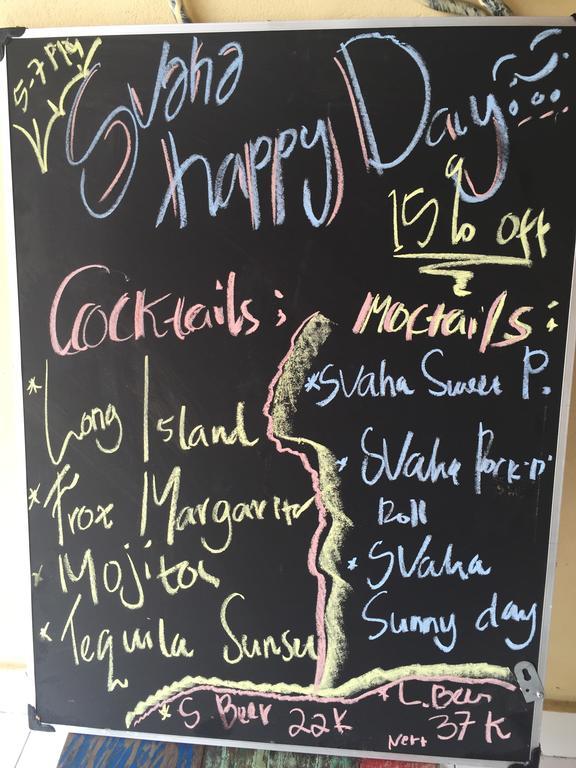 5-7 PM
Svaha
happy Day
15% off
Cocktails:
* Long Island
* Froz Margarita
* Mojitos
* Tequila
Moctails:
* SVaha Sweet P.
* SVaha
Roll
* SVaha
Sunny day
* S. Beer 22K
* L. Beer
Nett 37K